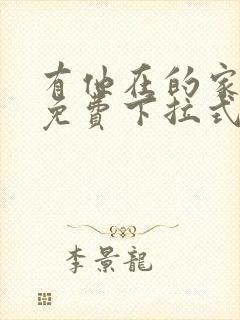 有他在的家
免费下拉式
李景龍